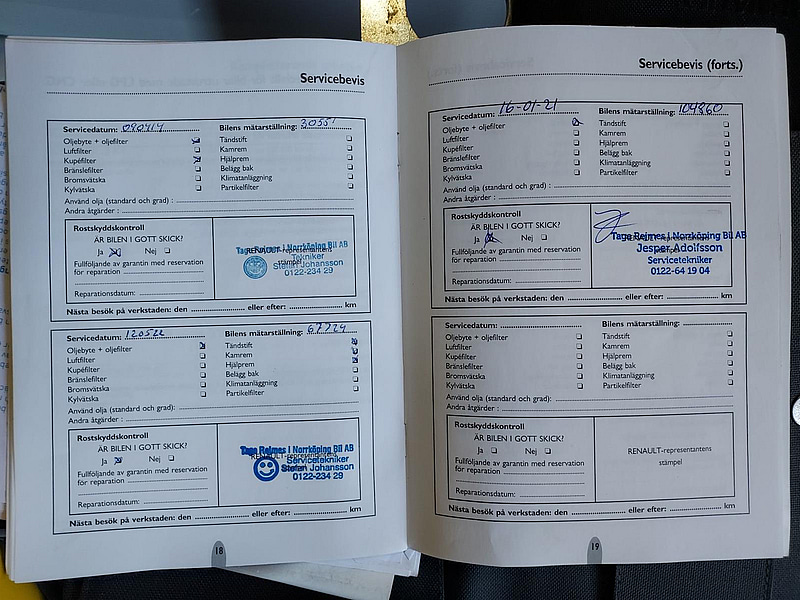 Servicebevis
Servicedatum: 090414 Bilens mätarställning:
Oljebyte + oljefilter Tändstift
Luftfilter Kamrem
Kupéfilter Hjälprem
Bränslefilter Belägg bak
Bromsvätska Klimatanläggning
Kylvätska Partikelfilter
Använd olja (standard och grad) :
Andra åtgärder :
Rostskyddskontroll
ÄR BILEN I GOTT SKICK?
Ja Nej
Fullföljande av garantin med reservation
för reparation :
Reparationsdatum:
RENAULT-representantens
stämpel
Tage Rejmes i Norrköping Bil AB
Tekniker
Stefan Johansson
0122-234 29
Nästa besök på verkstaden: den eller efter: km
Servicedatum: 120522 Bilens mätarställning: 67724
Oljebyte + oljefilter Tändstift
Luftfilter Kamrem
Kupéfilter Hjälprem
Bränslefilter Belägg bak
Bromsvätska Klimatanläggning
Kylvätska Partikelfilter
Använd olja (standard och grad):
Andra åtgärder :
Rostskyddskontroll
ÄR BILEN I GOTT SKICK?
Ja Nej
Fullföljande av garantin med reservation
för reparation :
Reparationsdatum:
Tage Rejmes i Norrköping Bil AB
RENAULT-representantens
Servicetekniker
Stefan Johansson
0122-234 29
Nästa besök på verkstaden: den eller efter: km
18
Servicebevis (forts.)
Servicedatum: 16-01-21 Bilens mätarställning: 104860
Oljebyte + oljefilter Tändstift
Luftfilter Kamrem
Kupéfilter Hjälprem
Bränslefilter Belägg bak
Bromsvätska Klimatanläggning
Kylvätska Partikelfilter
Använd olja (standard och grad) :
Andra åtgärder :
Rostskyddskontroll
ÄR BILEN I GOTT SKICK?
Ja Nej
Fullföljande av garantin med reservation
för reparation :
Reparationsdatum:
Tage Rejmes i Norrköping Bil AB
Jesper Adolfsson
Servicetekniker
0122-64 19 04
Nästa besök på verkstaden: den eller efter: km
Servicedatum: Bilens mätarställning:
Oljebyte + oljefilter Tändstift
Luftfilter Kamrem
Kupéfilter Hjälprem
Bränslefilter Belägg bak
Bromsvätska Klimatanläggning
Kylvätska Partikelfilter
Använd olja (standard och grad) :
Andra åtgärder :
Rostskyddskontroll
ÄR BILEN I GOTT SKICK?
Ja Nej
Fullföljande av garantin med reservation
för reparation :
Reparationsdatum:
RENAULT-representantens
stämpel
Nästa besök på verkstaden: den eller efter: km
19